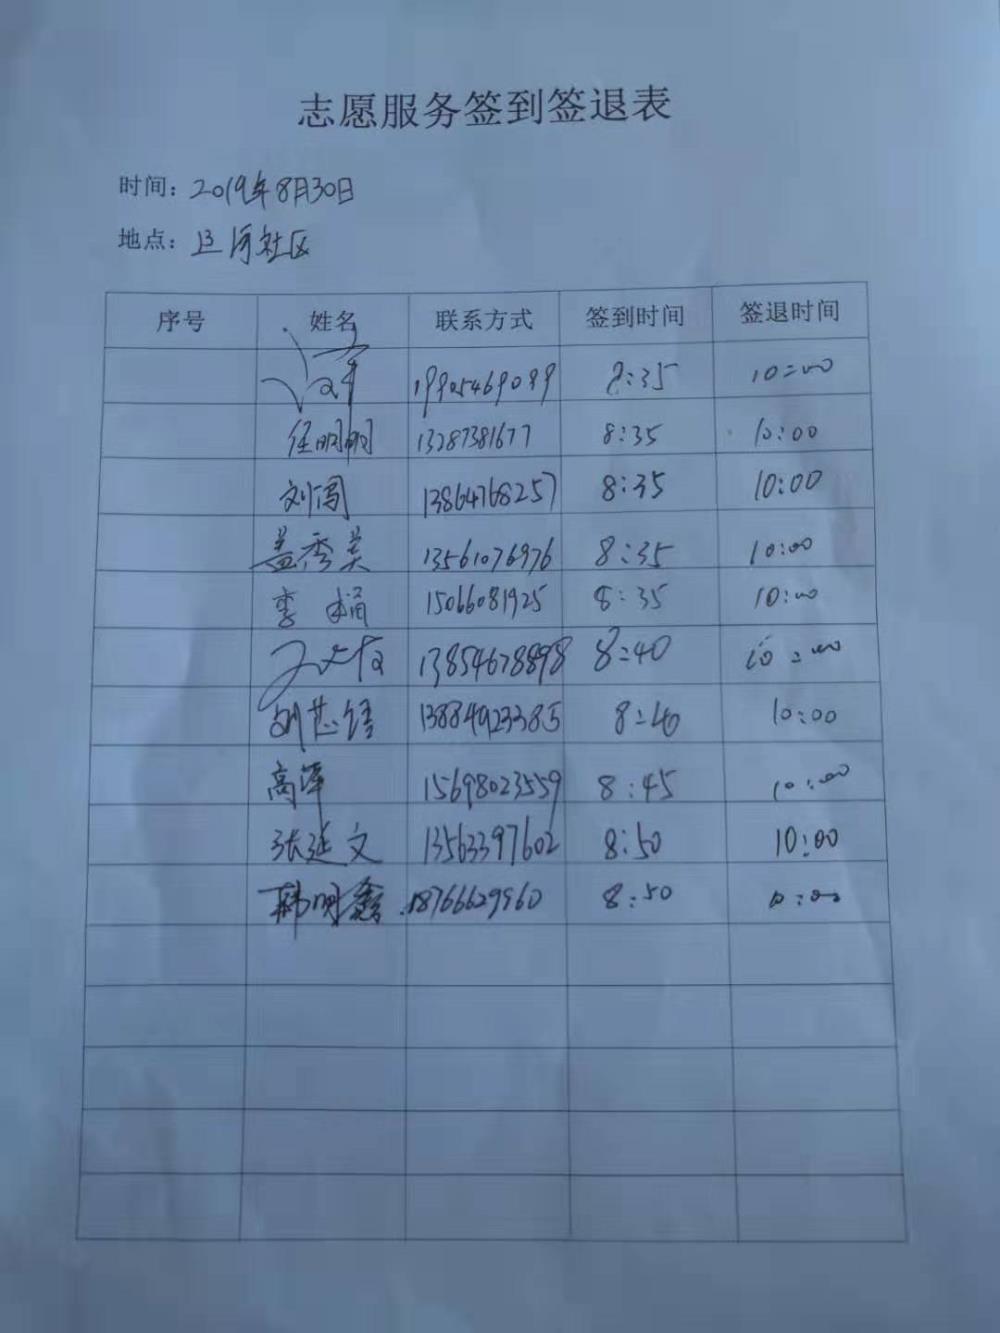 志愿服务签到签退表
时间：2019年8月30日
地点：河社区
序号 姓名 联系方式 签到时间 签退时间
19905469099 8:35 10:00
任明明 13287381677 8:35 10:00
刘闯 13864768257 8:35 10:00
盖秀美 13561076976 8:35 10:00
李娟 15066081925 8:35 10:00
13854678898 8:40 10:00
13884923385 8:40 10:00
高泽 15698023559 8:45 10:00
张延文 13563397602 8:50 10:00
韩明鑫 18766629960 8:50 10:00